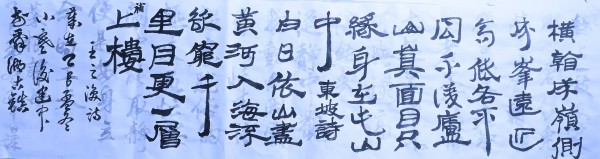 橫看成嶺側
成峯遠近
高低各不
同不識廬
山真面目只
緣身在此山
中 東坡詩
白日依山盡
黃河入海流
欲窮千
里目更一層
上樓
王之渙詩